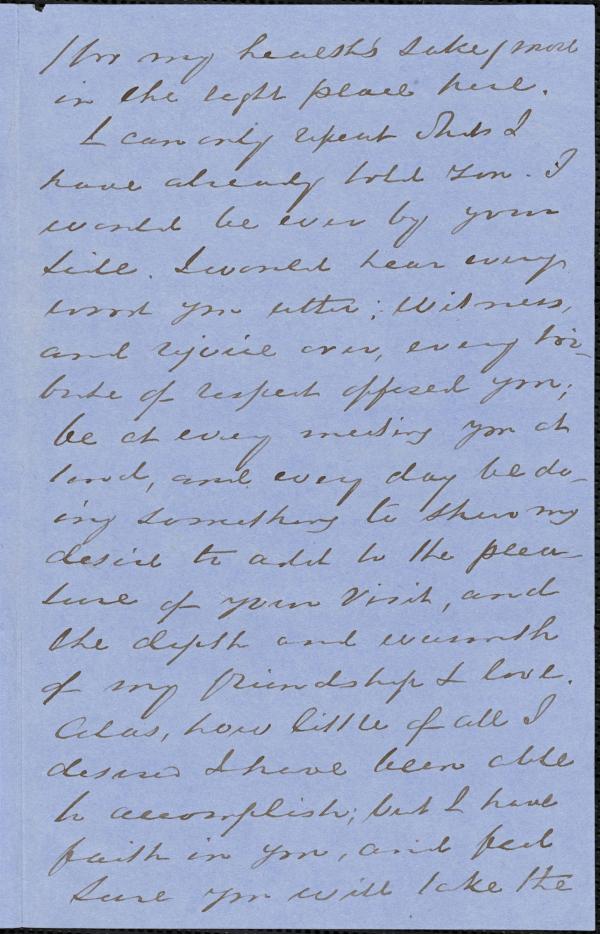 (for my health's sake) more
in the right place here.
I can only repeat what I
have already told you. I
would be ever by your
side. I would hear every
word you utter; witness,
and rejoice over, every tri-
bute of respect offered you;
be at every meeting you at
tend, and every day be do-
ing something to show my
desire to add to the plea-
sure of your visit, and
the depth and warmth
of my friendship & love.
Alas, how little of all I
desired I have been able
to accomplish; but I have
faith in you, and feel
sure you will take the